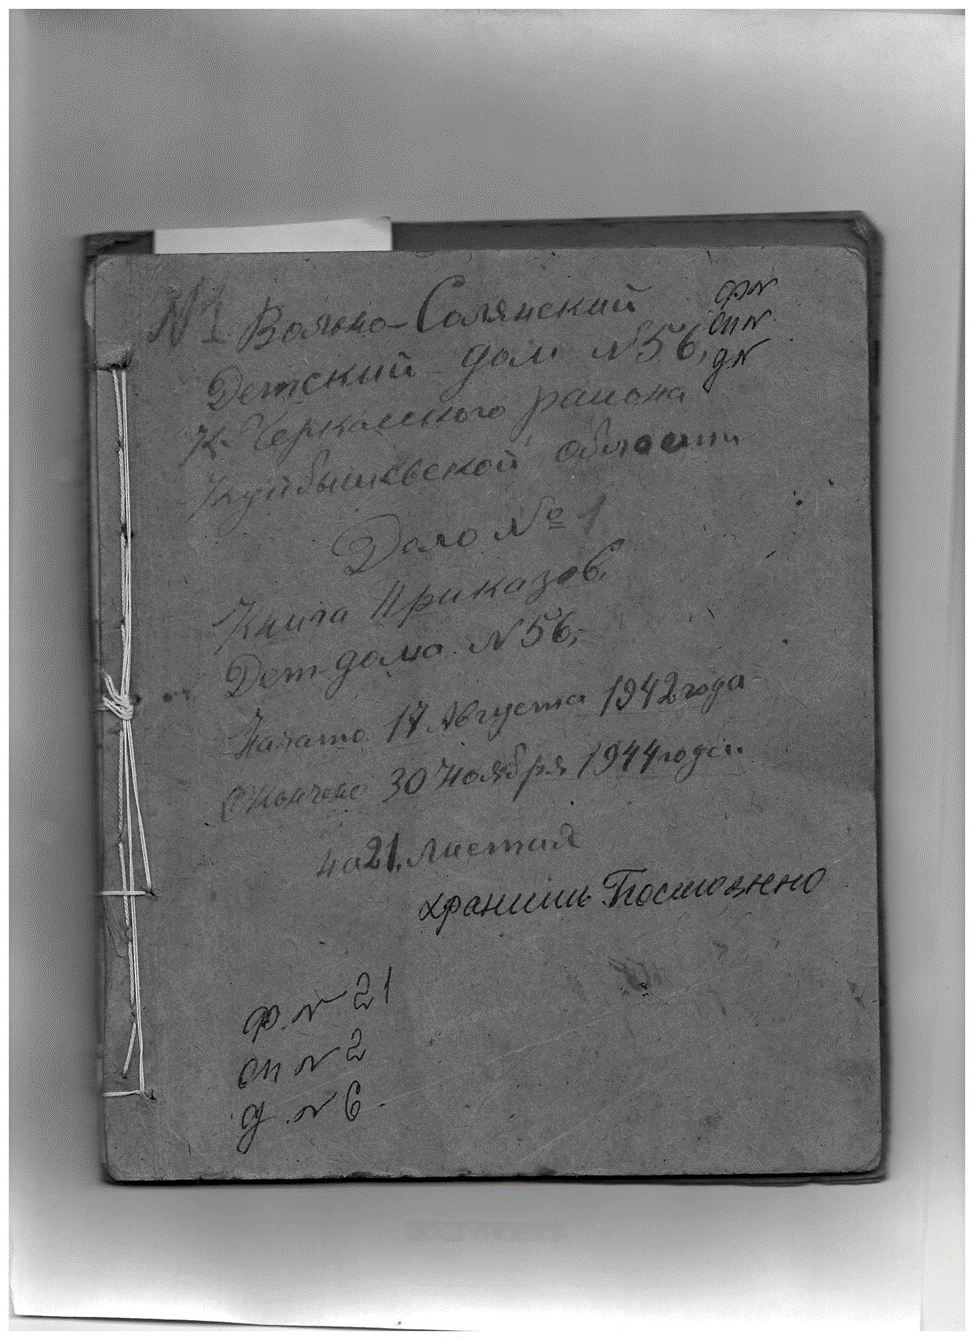 №1 Вольно-Солянский
Детский дом №56,
К-Черкасского района
Куйбышевской области
ф№
оп№
д№
Дело №1
Книга Приказов,
Дет дома №56,
Начато 17 Августа 1942 года
Окончено 30 Ноября 1944 года
На 21. листах
хранить Постоянно
ф. № 21
оп № 2
д. № 6.